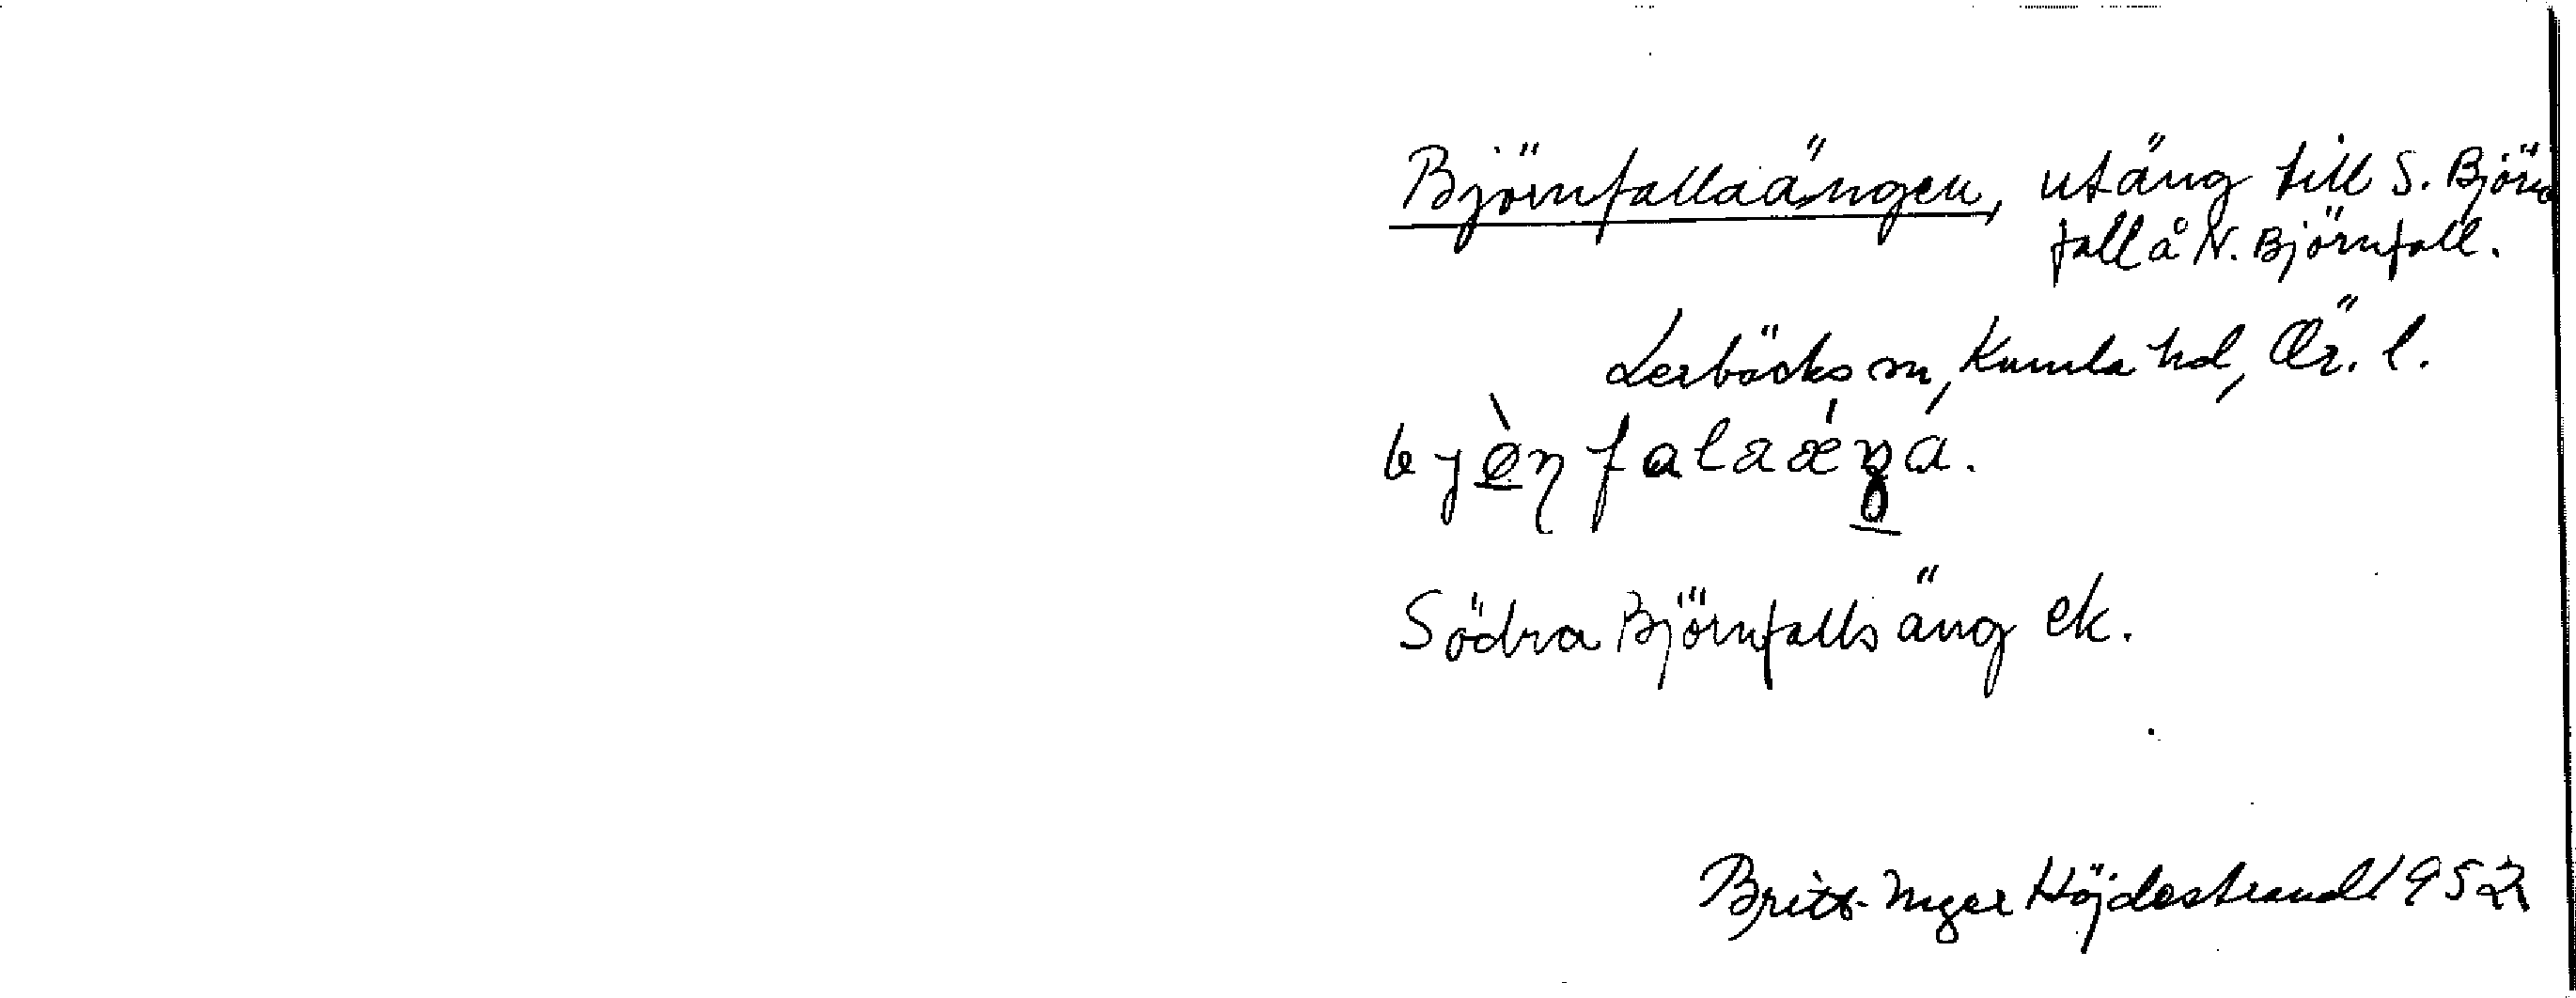 Björnfallaängen, utäng till S. Björn
fall å N. Björnfall.
Lerbäcks sn, Kumla hd, Ör. l.
bjø̀ɳfalaǽŋa.
Södra Björnfalls äng ek.
Britt-Inger Höjdestrand 1952